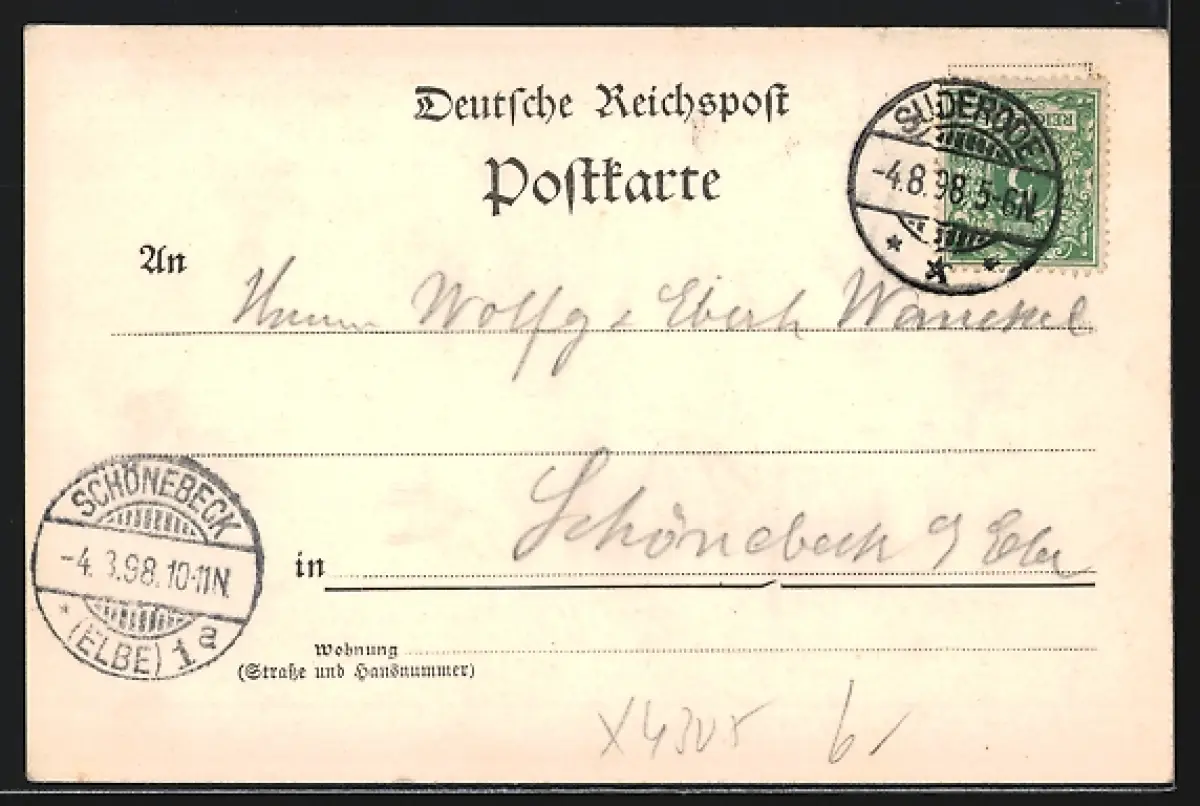 Deutsche Reichspost
Postkarte
SUDERODE
-4.8.98. 5-6N.
REICH
5
An
Wolfg & Eberh
SCHÖNEBECK
-4. 8.98. 10-11N.
(ELBE) 1 a
in Schönebeck a/ Elbe
Wohnung
(Straße und Hausnummer)
X4305 6